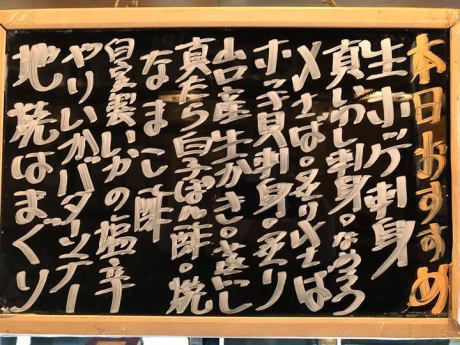 本日おすすめ
生ホッケ刺身
真いわし刺身。なめろう
〆さば。炙り〆さば
ホッキ貝刺身。炙り
山口産生かき。蒸し
真たら白子ぽん酢。焼
なまこ酢
自家製いかの塩辛
やりいかバターソテー
地焼はまぐり